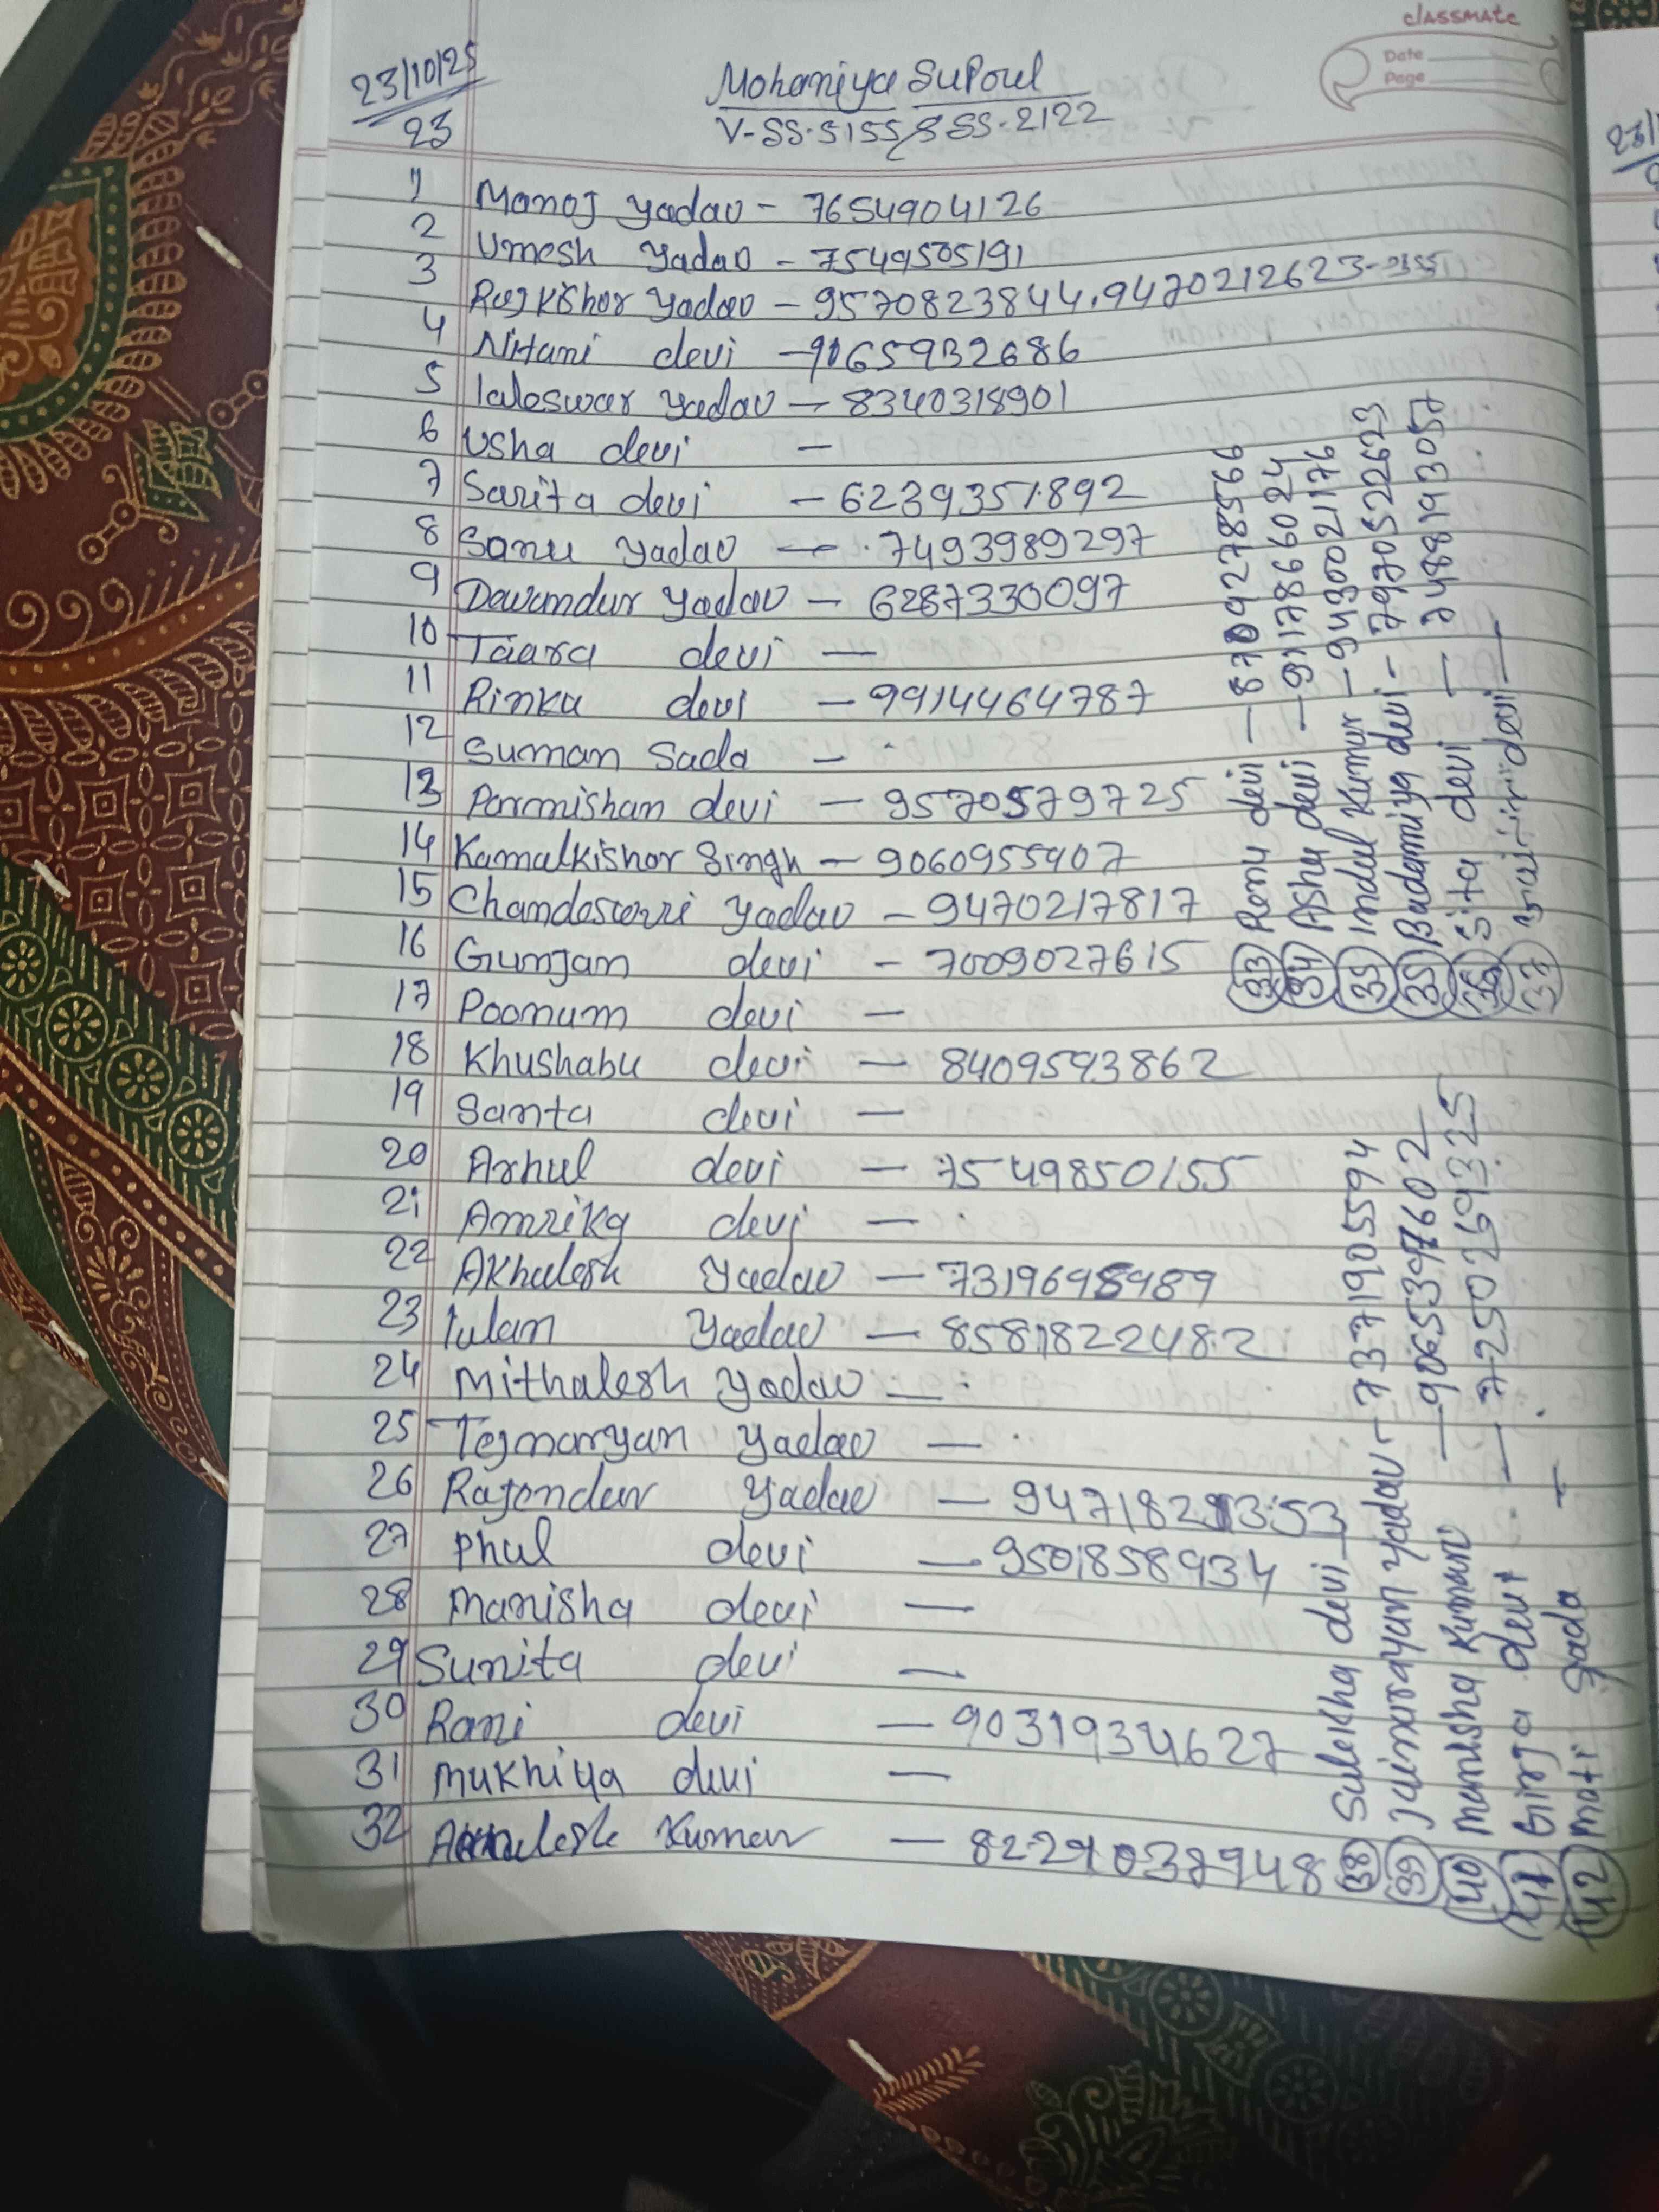 classmate
Date
Page
23/10/25
23
Mohaniya Supoul
V-SS-5155/SSS-2122
1 Manoj yadav - 7654904126
2 Umesh yadav - 7549505191
3 Rajkishor yadav - 9570823844, 9470212623-2155
4 Nitani devi - 9065932686
5 laleswar yadav - 8340318901
6 Usha devi -
7 Sarita devi - 6239351892
8 Sonu yadav - 7493989297
9 Devendur yadav - 6287330097
10 Taara devi -
11 Rinku devi - 9914464787
12 Suman Sada -
13 Parmishan devi - 9570579725
14 Kamalkishor Singh - 9060955907
15 Chandeswri yadav - 9470217817
16 Gunjan devi - 7009027615
17 Poonum devi -
18 Khushabu devi - 8409593862
19 Santa devi -
20 Arhul devi - 7549850155
21 Amrika devi -
22 Akhalesh yadav - 7319698989
23 lulan yadav - 8581822482
24 Mithalesh yadav -
25 Tejnaryan yadav -
26 Rajendar yadav -
27 Phul devi - 9501858934
28 Manisha devi -
29 Sunita devi -
30 Rani devi - 9031934627
31 Mukhiya devi -
32 Kumar - 8229037948
33 Renu devi - 8709278566
34 Ashu devi - 9117866024
35 Indal Kumar - 9430021176
35 Badamiya devi - 7970522623
Sita devi - 7488193057
37 devi -
38 Sulekha devi - 7371905594
39 Jainarayan yadav - 9065397602
40 Manisha Kumari - 7250269325
41 Girja devi
42 Moti Sada -